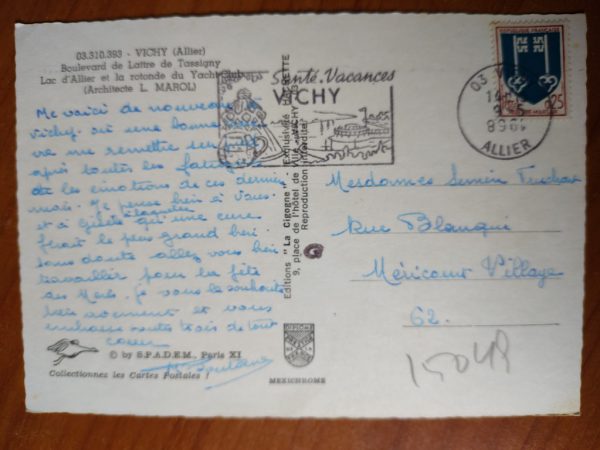 03.310.393 - VICHY (Allier)
Boulevard de Lattre de Tassigny
Lac d'Allier et la rotonde du Yacht-Club
(Architecte L. MAROL)
Me voici de nouveau
Vichy où une bonne
va me remettre
après toutes les
et les émotions de ces derniers
mois. Je pense bien à vous
et à Gisèle à laquelle une cure
ferait le plus grand bien.
Sans doute allez vous bien
travailler pour la fête
des je vous le souhaite
bien vivement et vous
embrasse toutes trois de tout
coeur
© by S.P.A.D.E.M., Paris XI
Collectionnez les Cartes Postales !
Editions "La Cigogne" - Exclusivité HACHETTE
9, place de l'hôtel de Ville - VICHY
Reproduction interdite
MEXICHROME
Santé.Vacances
VICHY
REPUBLIQUE FRANÇAISE
0,25
03 VICHY
ALLIER
Mesdames
Rue Blanqui
Méricourt Village
62.
15048